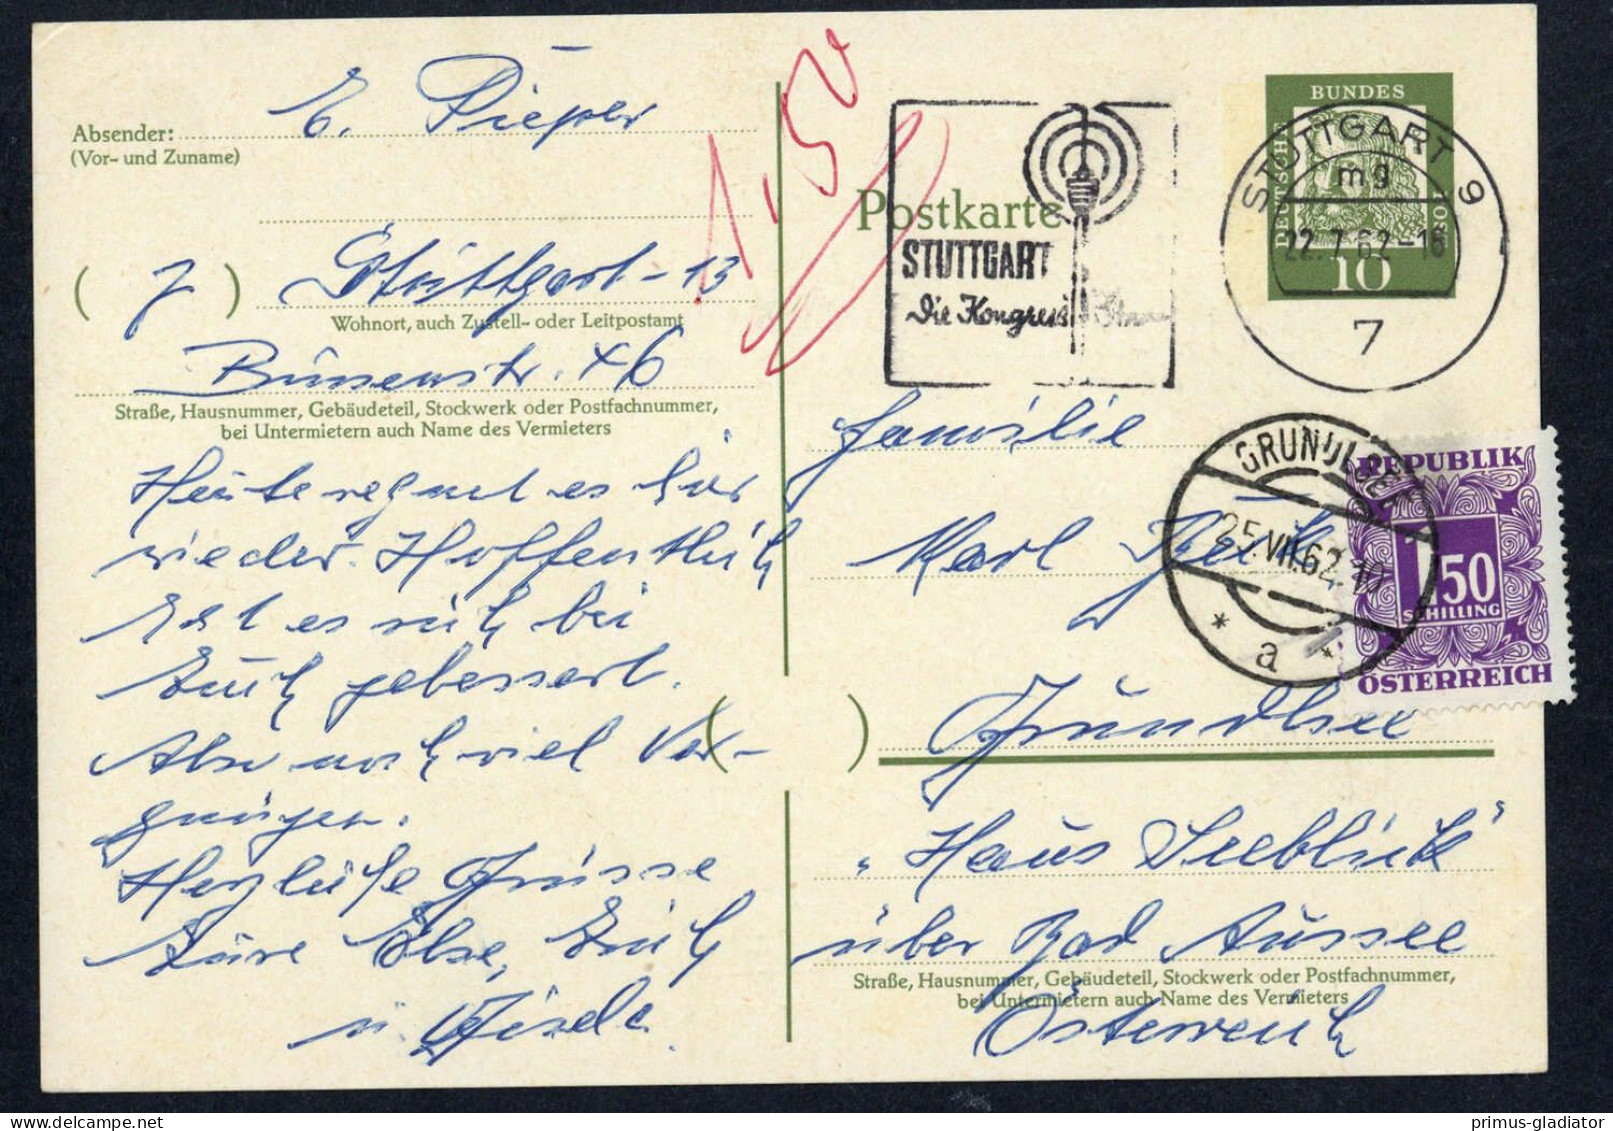 Absender: E. Piepser
(Vor- und Zuname)
(7) Stuttgart-13
Wohnort, auch Zustell- oder Leitpostamt
Büsenstr. 46
Straße, Hausnummer, Gebäudeteil, Stockwerk oder Postfachnummer,
bei Untermietern auch Name des Vermieters
Heute regnet es hier
wieder. Hoffentlich
hat es sich bei
Euch gebessert.
Also noch viel Ver-
gnügen.
Herzliche Grüsse
Eure Else, Erich
u. Gisela
1,50
Postkarte
STUTTGART
Die Kongress
STUTTGART 9
mg
22.7.62-16
7
DEUTSCHE
BUNDES
POST
10
Familie
Karl Beck
Grundlsee
„Haus Seeblick"
über Bad Aussee
Straße, Hausnummer, Gebäudeteil, Stockwerk oder Postfachnummer,
bei Untermietern auch Name des Vermieters
Österreich
GRUNDLSEE
25.VII.62.10
* a *
REPUBLIK
1.50
SCHILLING
ÖSTERREICH
primus-gladiator